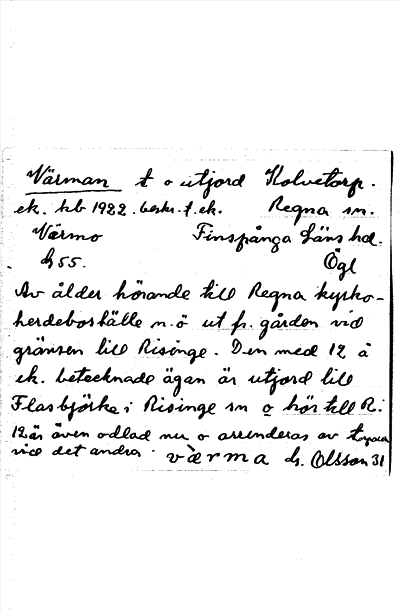 Värman t o utjord Kolvetorp.
ek. kb 1922. beskr. t. ek. Regna sn.
Värmo Finspånga Läns hd.
h 55. Ögl
Av ålder hörande till Regna kyrko-
herdeboställe n. ö ut fr. gården vid
gränsen till Risinge. Den med 12 å
ek. betecknade ägan är utjord till
Flasbjörke i Risinge sn o hör till R.
12 är även odlad nu o arrenderas av
vid det andra. værma h. Olsson 31